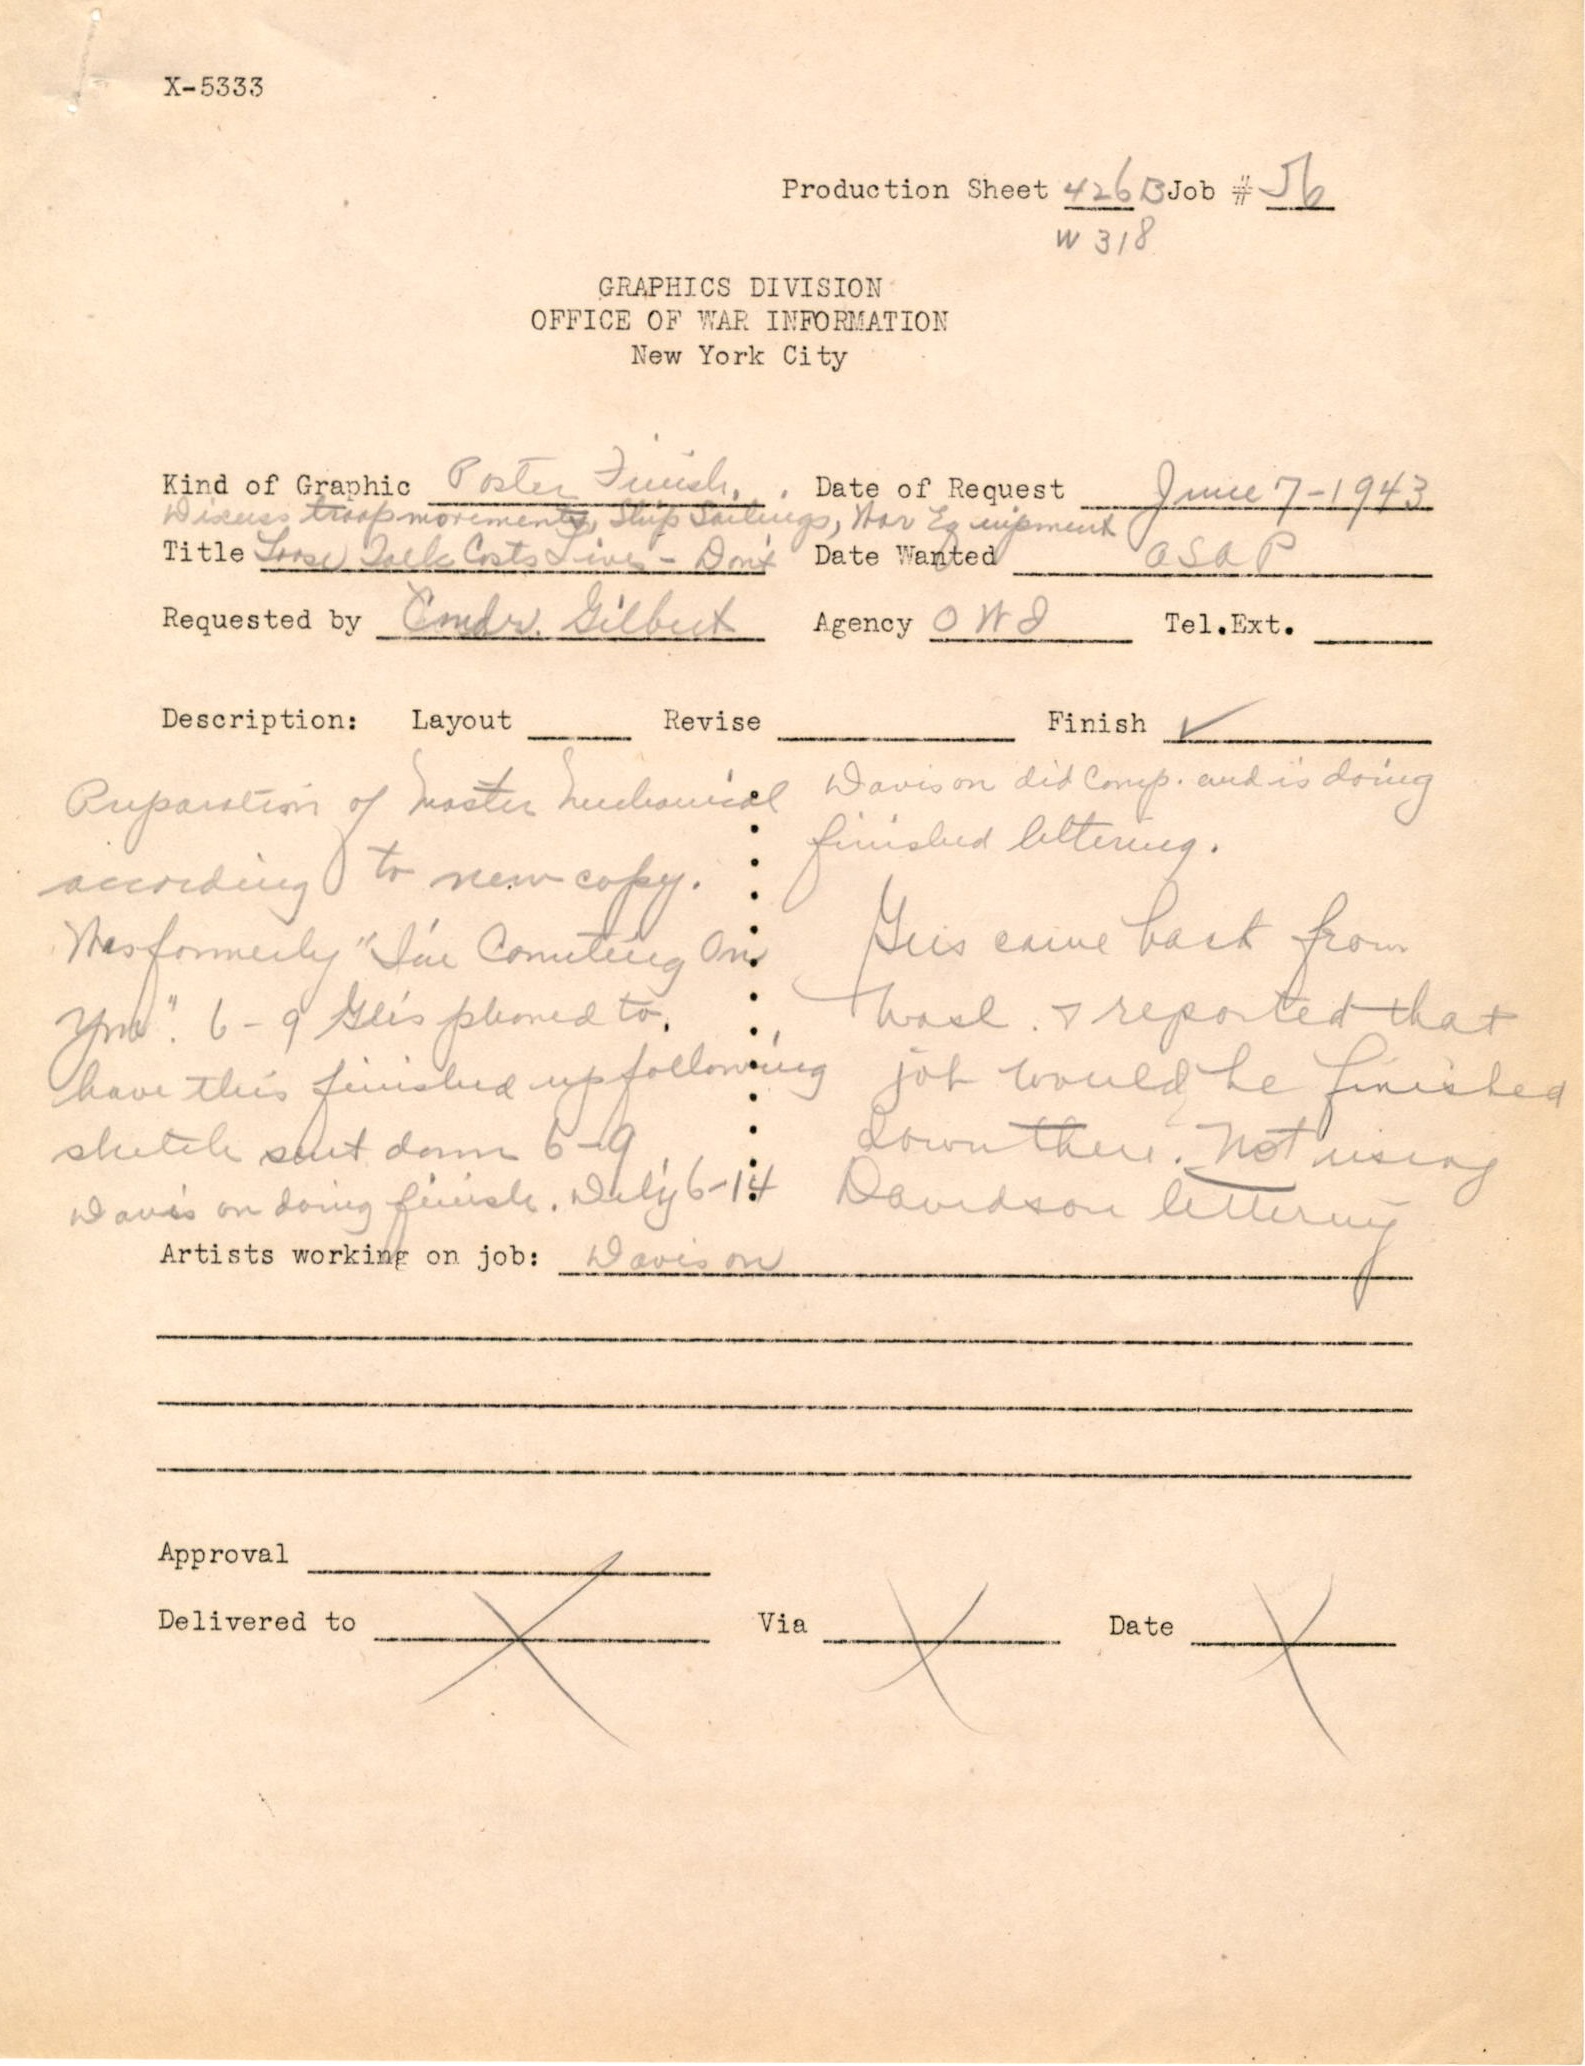 X-5333
Production Sheet 426B Job # 56
W 318
GRAPHICS DIVISION
OFFICE OF WAR INFORMATION
New York City
Kind of Graphic Poster Finish. Date of Request June 7-1943
Discuss troop movements, Ship Sailings, War Equipment
Title Loose Talk Costs Lives - Don't Date Wanted ASAP
Requested by Comdr. Gilbert Agency OWI Tel.Ext.
Description: Layout Revise Finish ✓
Preparation of Master Mechanical
according to new copy.
Was formerly "I'm Counting On
You". 6-9 Geis phoned to
have this finished up following
sketch sent down 6-9
Davison doing finish. 6-14
Davison did Comp. and is doing
finished lettering.
Geis came back from
Wash. & reported that
job would be finished
down there. Not using
Davidson lettering
Artists working on job: Davison
Approval
Delivered to X Via X Date X